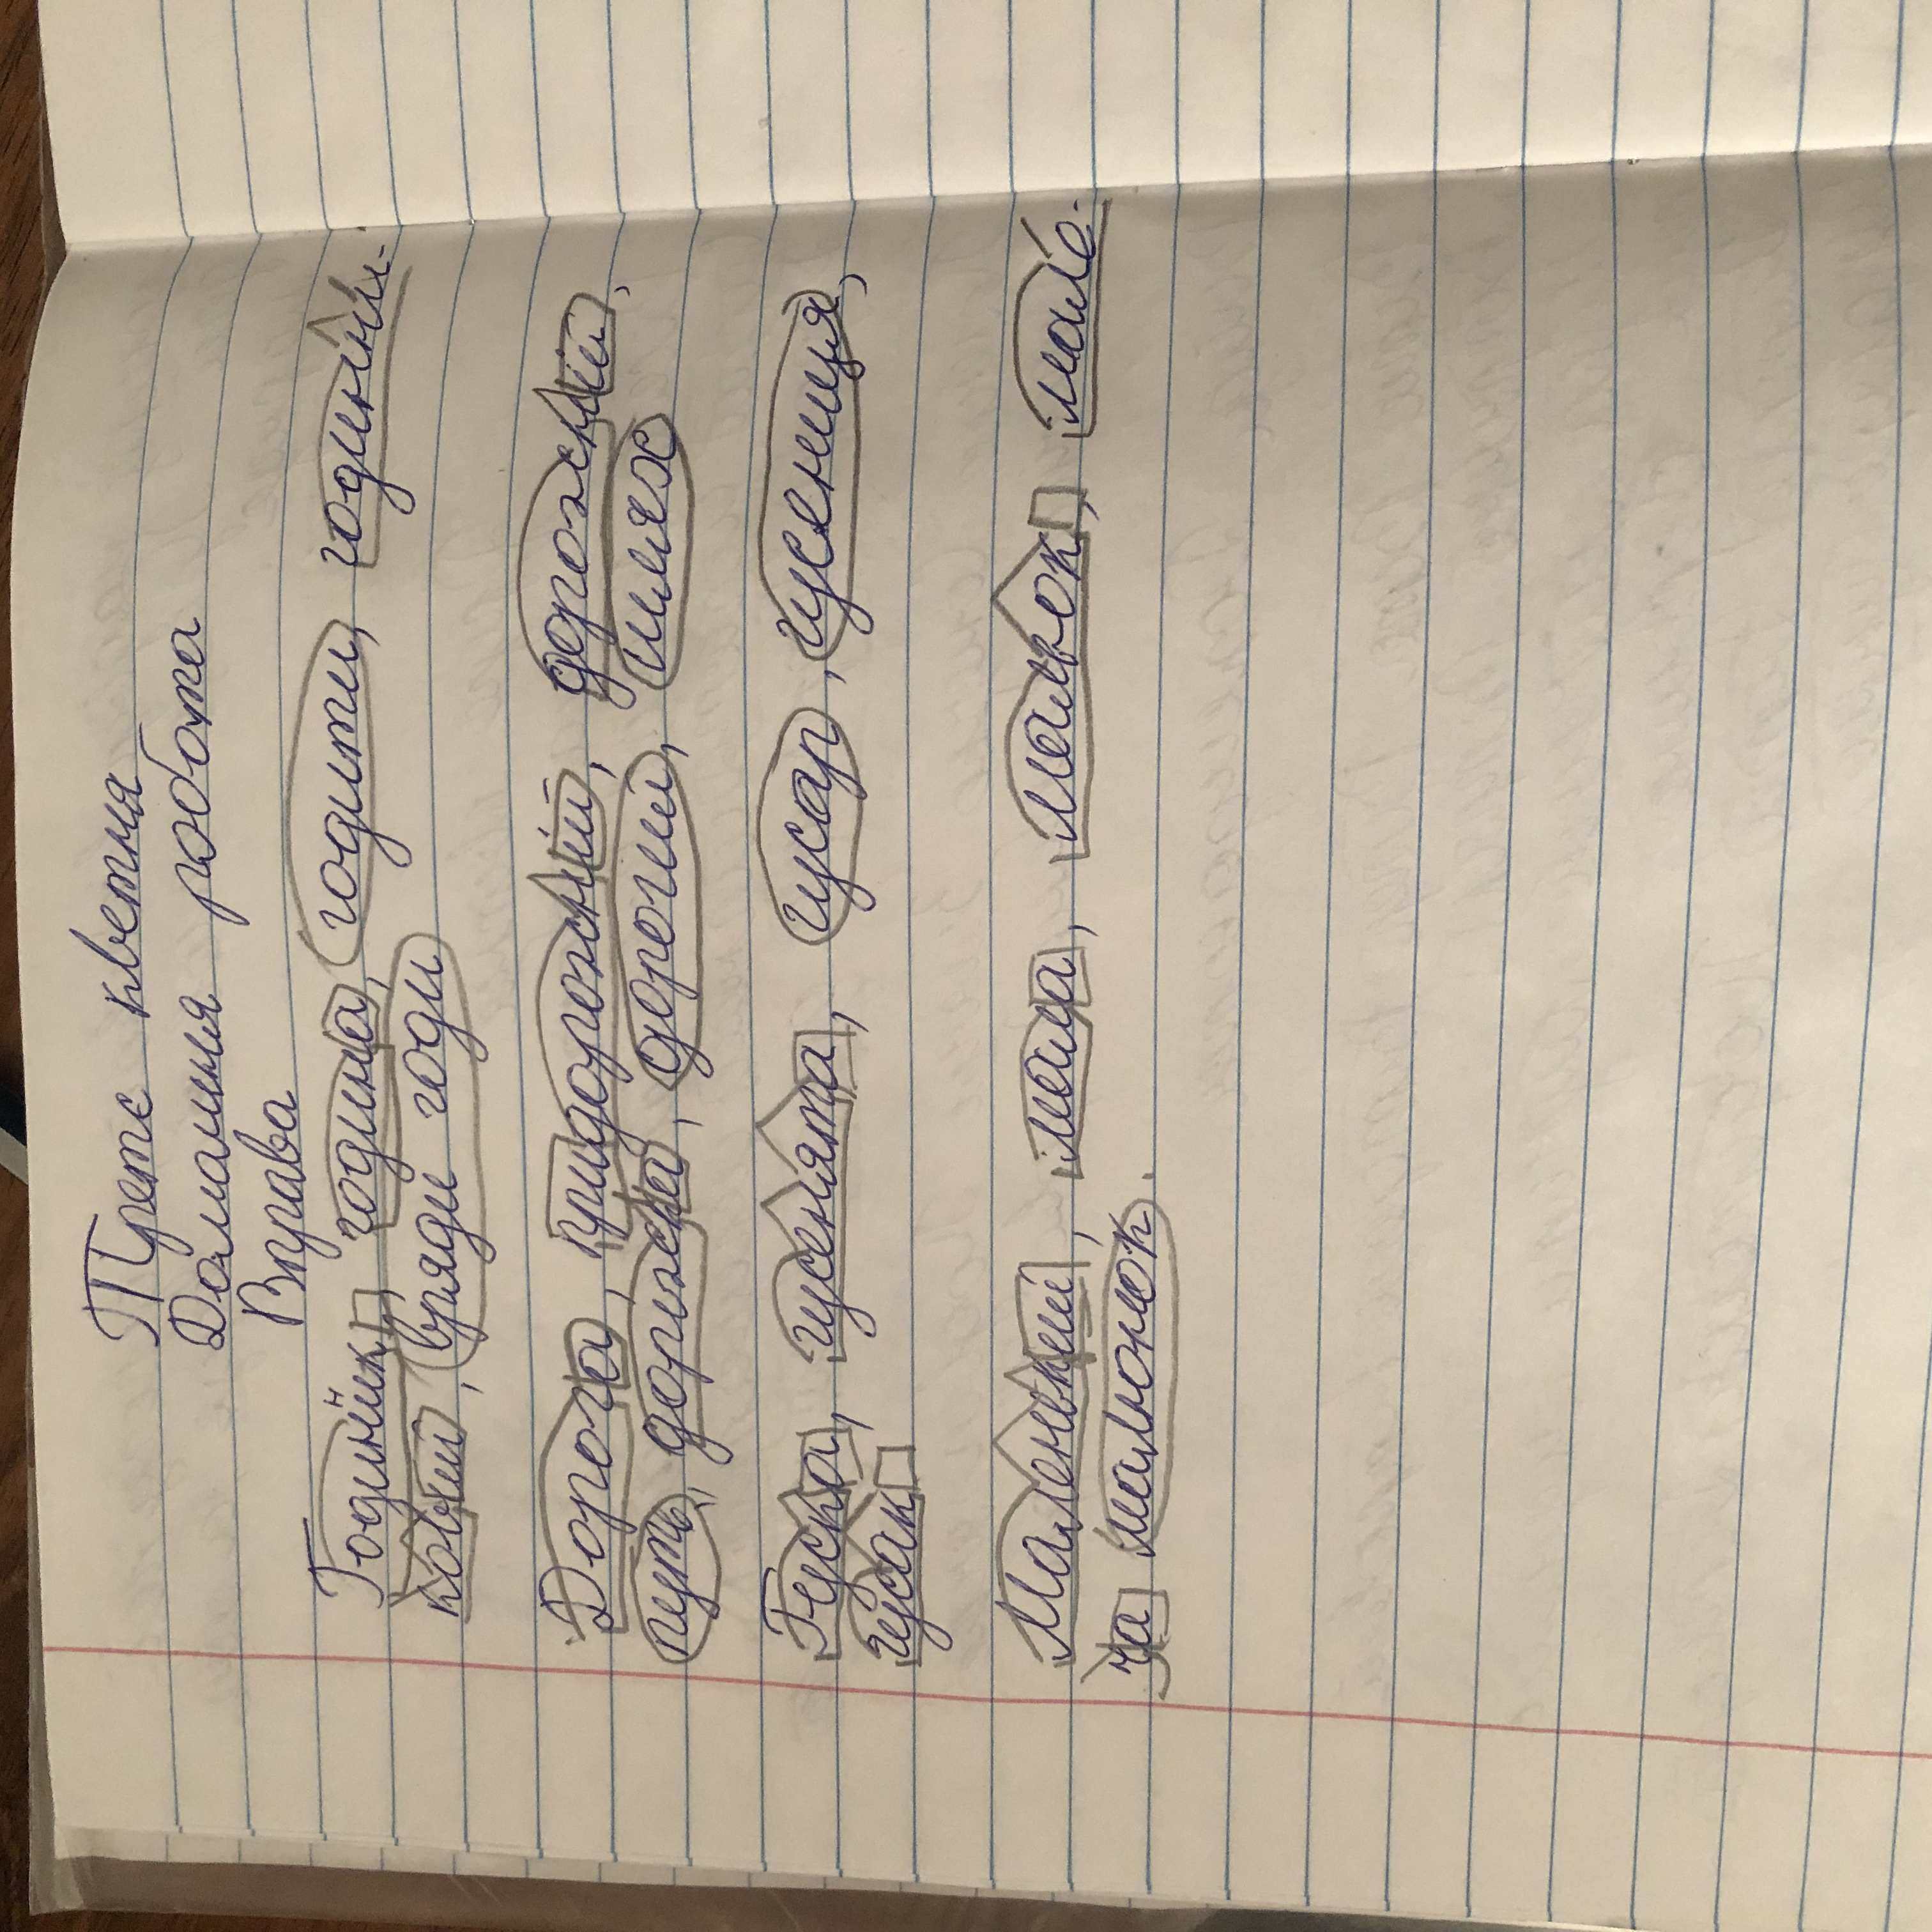 Третє квітня
Домашня робота
Вправа
Годинник, година, годити, годинни-
ковий, вряди годи
Дорога, придорожній, дорожній,
путь, доріжка, дорогий, шлях
Гуска, гусенята, гусар, гусениця,
гусак
Маленький, мала, мальок, мале-
ча малюнок.